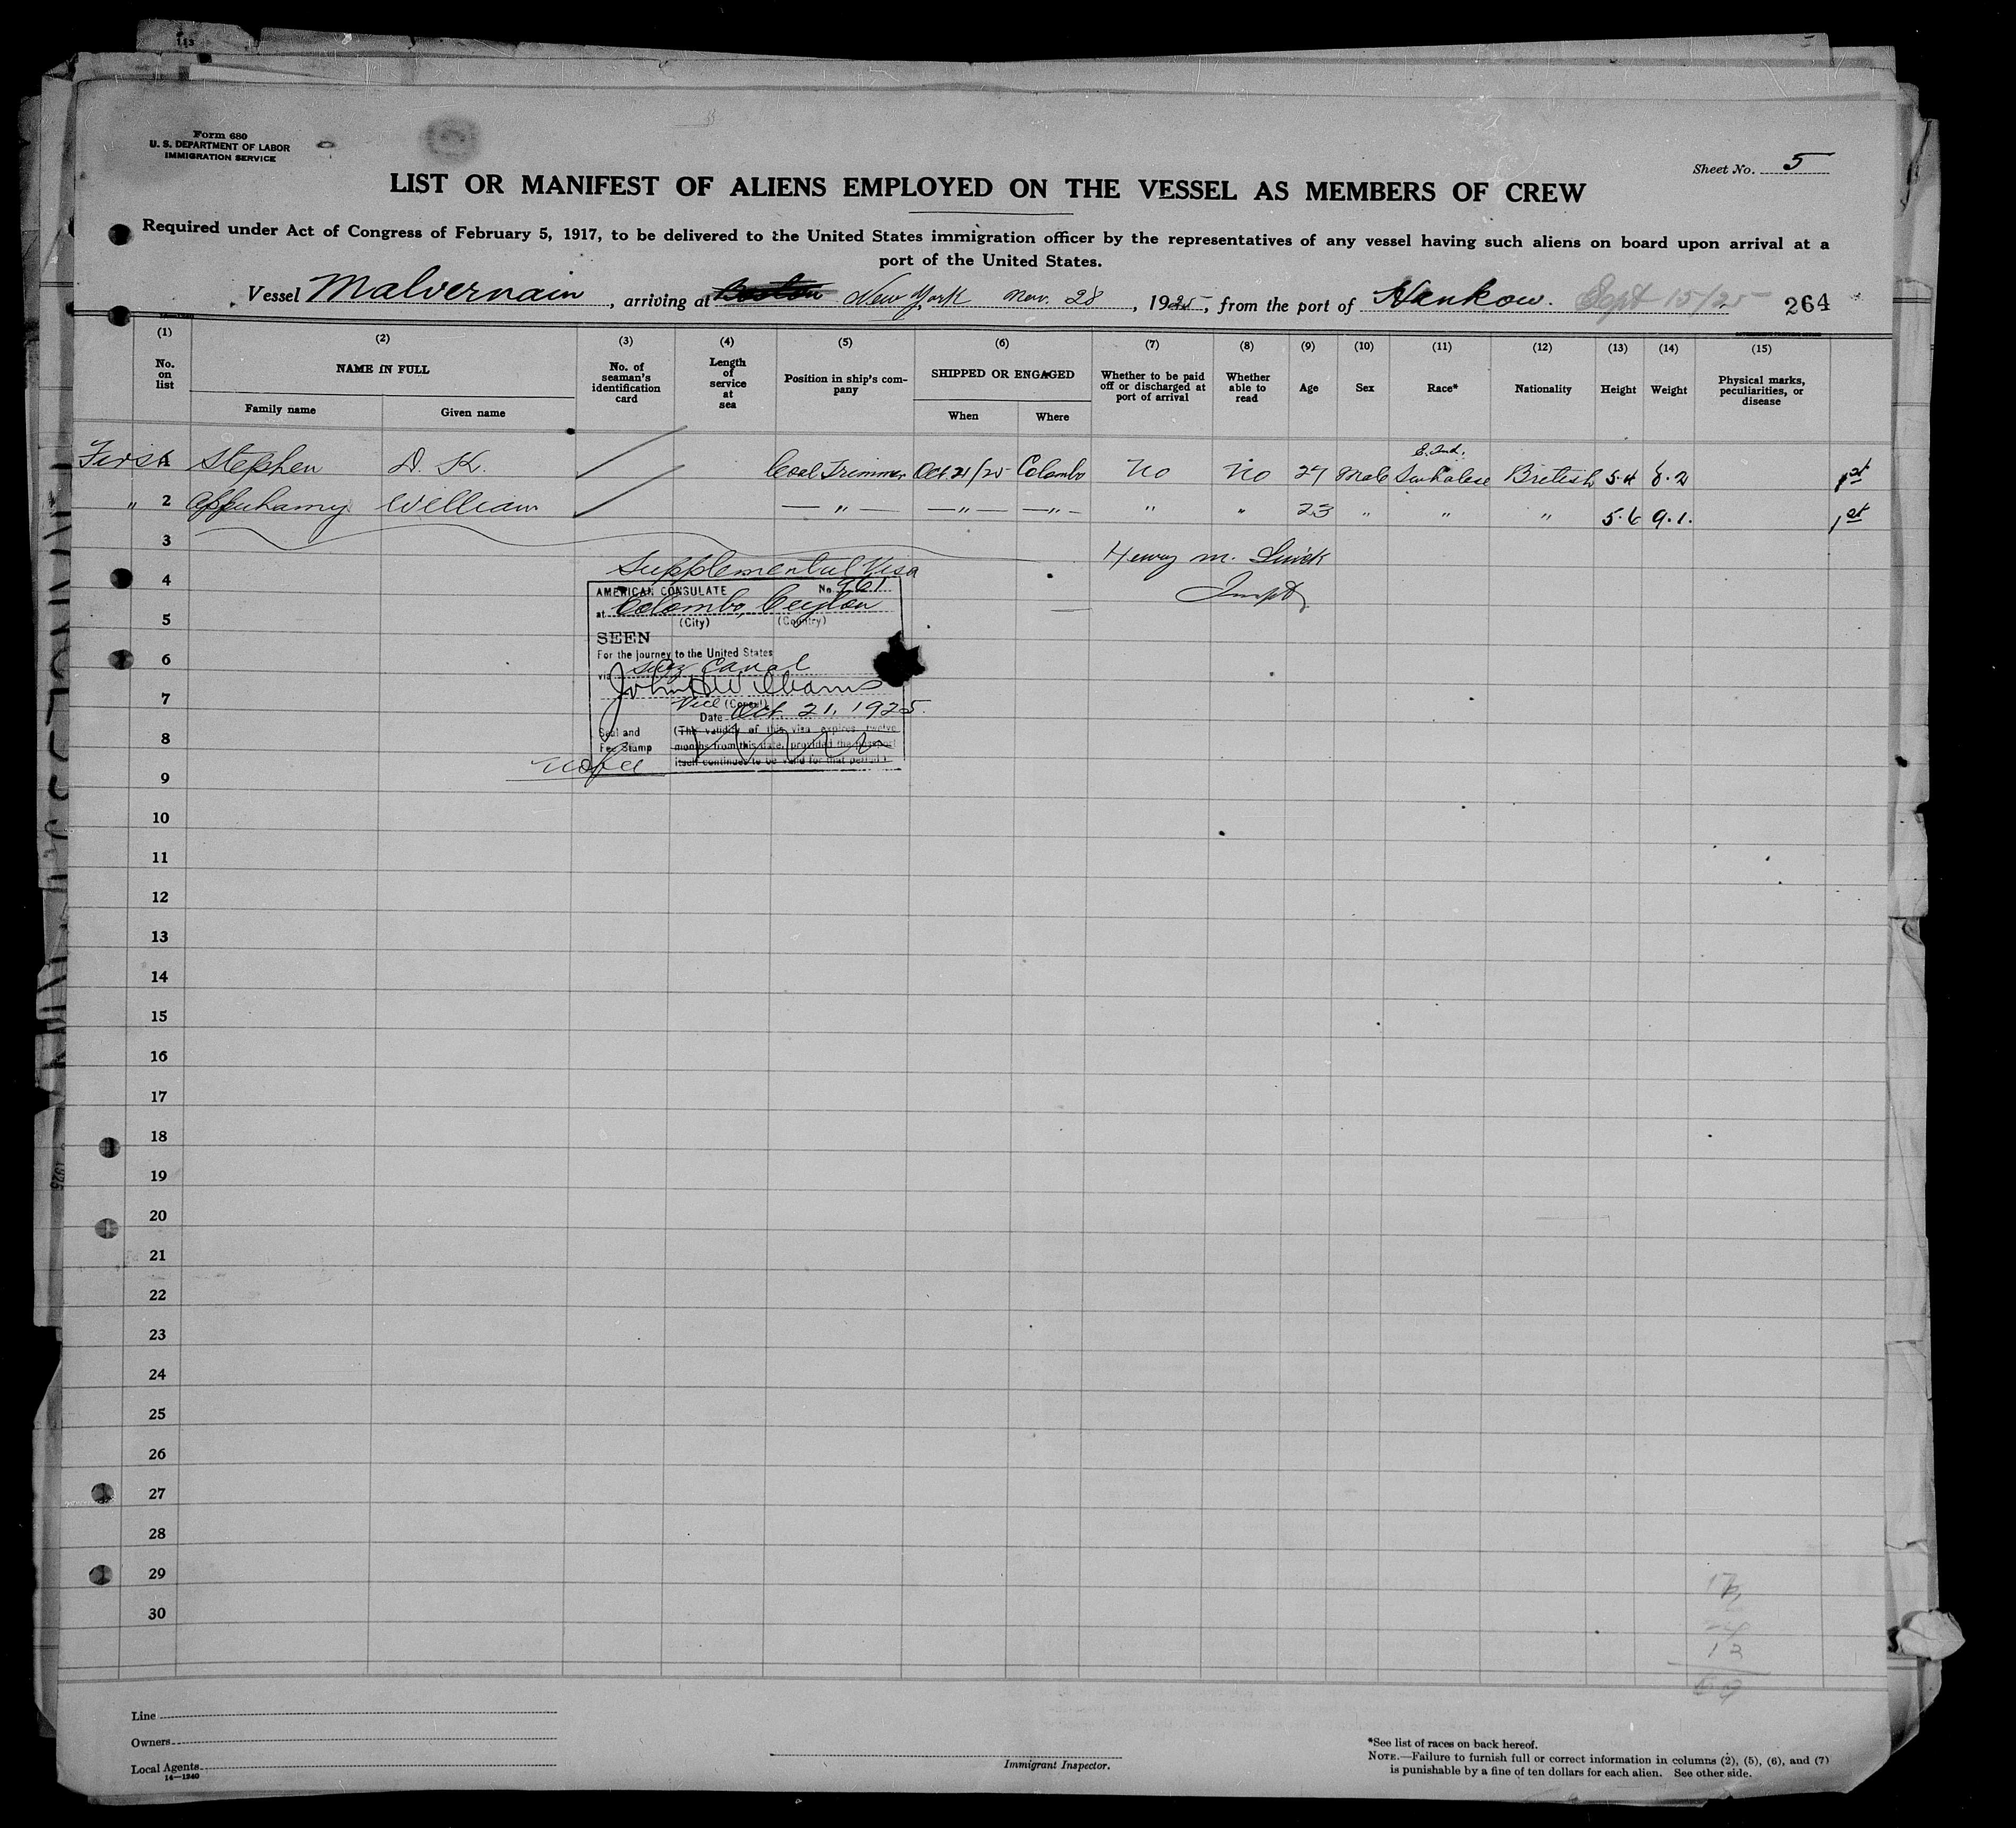 Form 680
U. S. DEPARTMENT OF LABOR
IMMIGRATION SERVICE
Sheet No. 5
LIST OR MANIFEST OF ALIENS EMPLOYED ON THE VESSEL AS MEMBERS OF CREW
Required under Act of Congress of February 5, 1917, to be delivered to the United States immigration officer by the representatives of any vessel having such aliens on board upon arrival at a
port of the United States.
Vessel Malvernain, arriving at Boston New York Nov. 28, 1925, from the port of Hankow. Sept 15/25 264
(1) (2) (3) (4) (5) (6) (7) (8) (9) (10) (11) (12) (13) (14) (15)
No. on list NAME IN FULL No. of seaman's identification card Length of service at sea Position in ship's company SHIPPED OR ENGAGED Whether to be paid off or discharged at port of arrival Whether able to read Age Sex Race* Nationality Height Weight Physical marks, peculiarities, or disease
Family name Given name When Where
E. Ind.
First 1 Stephen D. K. Coal Trimmer Oct 21/25 Colombo No No 24 Male Sinhalese British 5.4 8.2 1st
" 2 Appuhamy William — " — — " — — " — " " 23 " " " 5.6 9.1. 1st
3 Henry M.
Supplemental Visa
4 AMERICAN CONSULATE No. 961
at Colombo, Ceylon Inspt
5 (City) (Country)
SEEN
6 For the journey to the United States
via Suez Canal
7 John H Williams
Vice (Consul)
Date Oct. 21, 1925.
8 Seal and Fee Stamp (The validity of this visa expires twelve
months from this date, provided the passport
itself continues to be valid for that period)
No fee
9
10
11
12
13
14
15
16
17
18
19
20
21
22
23
24
25
26
27
28
29
30
13
69
Line
Owners
Local Agents
14—1240
Immigrant Inspector.
*See list of races on back hereof.
NOTE.—Failure to furnish full or correct information in columns (2), (5), (6), and (7)
is punishable by a fine of ten dollars for each alien. See other side.